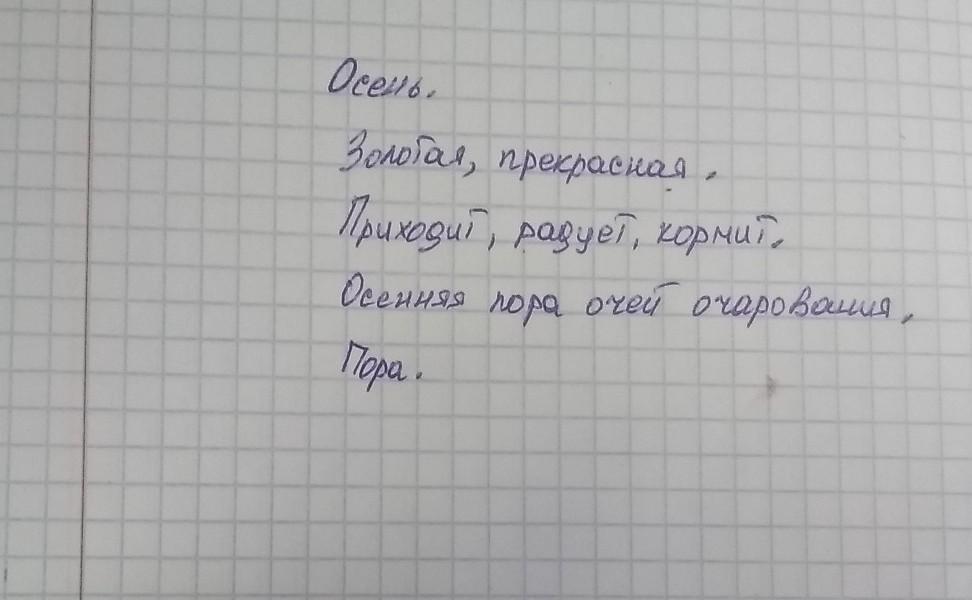 Осень.
Золотая, прекрасная.
Приходит, радует, кормит.
Осенняя пора очей очарования.
Пора.